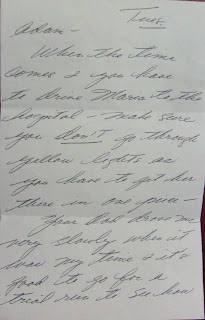 Tues.
Adam -
When the time
comes & you have
to drive Maria to the
hospital - make sure
you don't go through
yellow lights as
you have to get her
there in one piece -
Your Dad drove me
very slowly when it
was my time & it's
good to go for a
trial run to see how